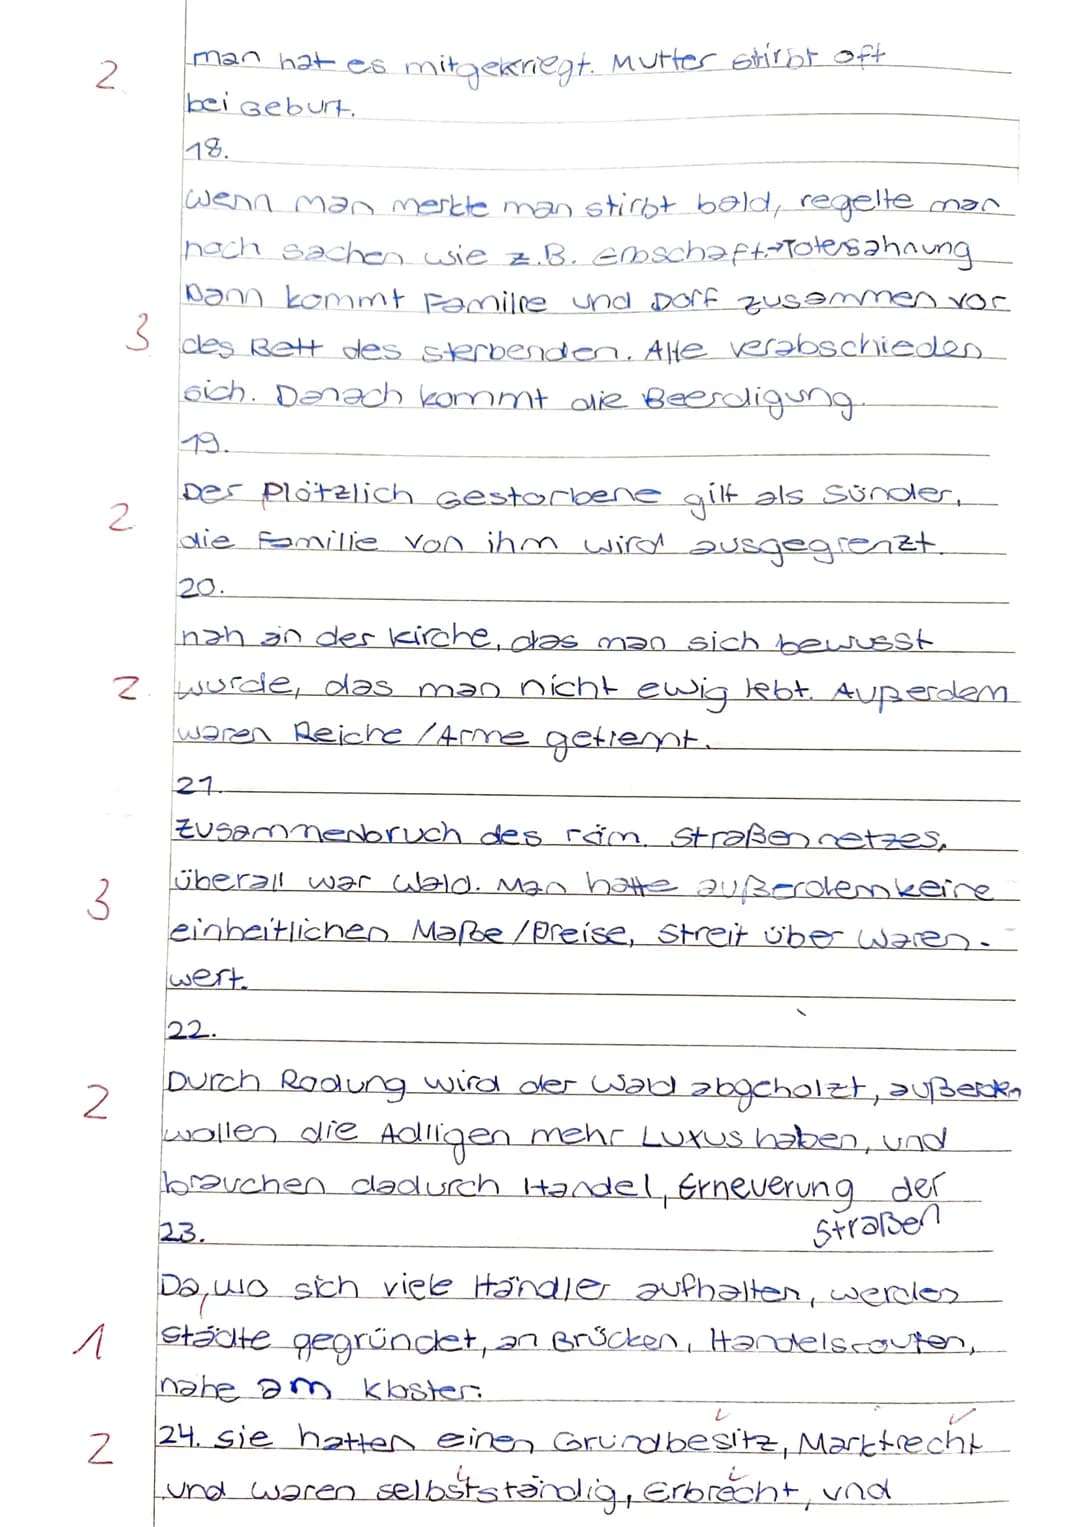 man hat es mitgekriegt. Mutter stirbt oft
2
bei Geburt.
18.
wenn man merkte man stirbt bald, regelte man
noch sachen wie z.B. Erbschaft→Totersahnung
Dann kommt Familie und Dorf zusammen vor
3 des Bett des sterbenden. Alle verabschieden
sich. Danach kommt die Beerdigung.
19.
Der Plötzlich Gestorbene gilt als Sünder,
2
die Familie von ihm wird ausgegrenzt.
20.
nah an der Kirche, das man sich bewusst
2. wurde, das man nicht ewig lebt. Außerdem
waren Reiche / Arme getrennt.
21.
Zusammenbruch des röm. Straßennetzes,
überall war Wald. Man hatte außerdem keine
3
einheitlichen Maße / Preise, Streit über Waren-
wert.
22.
Durch Rodung wird der Wald abgeholzt, außerdem
2
wollen die Adligen mehr Luxus haben, und
brauchen dadurch Handel, Erneuerung der
Straßen
23.
Da, wo sich viele Händler aufhalten, werden
1 Städte gegründet, an Brücken, Handelsrouten,
nahe am Kloster.
2 24. sie hatten einen Grundbesitz, Marktrecht
und waren selbstständig, Erbrecht, und